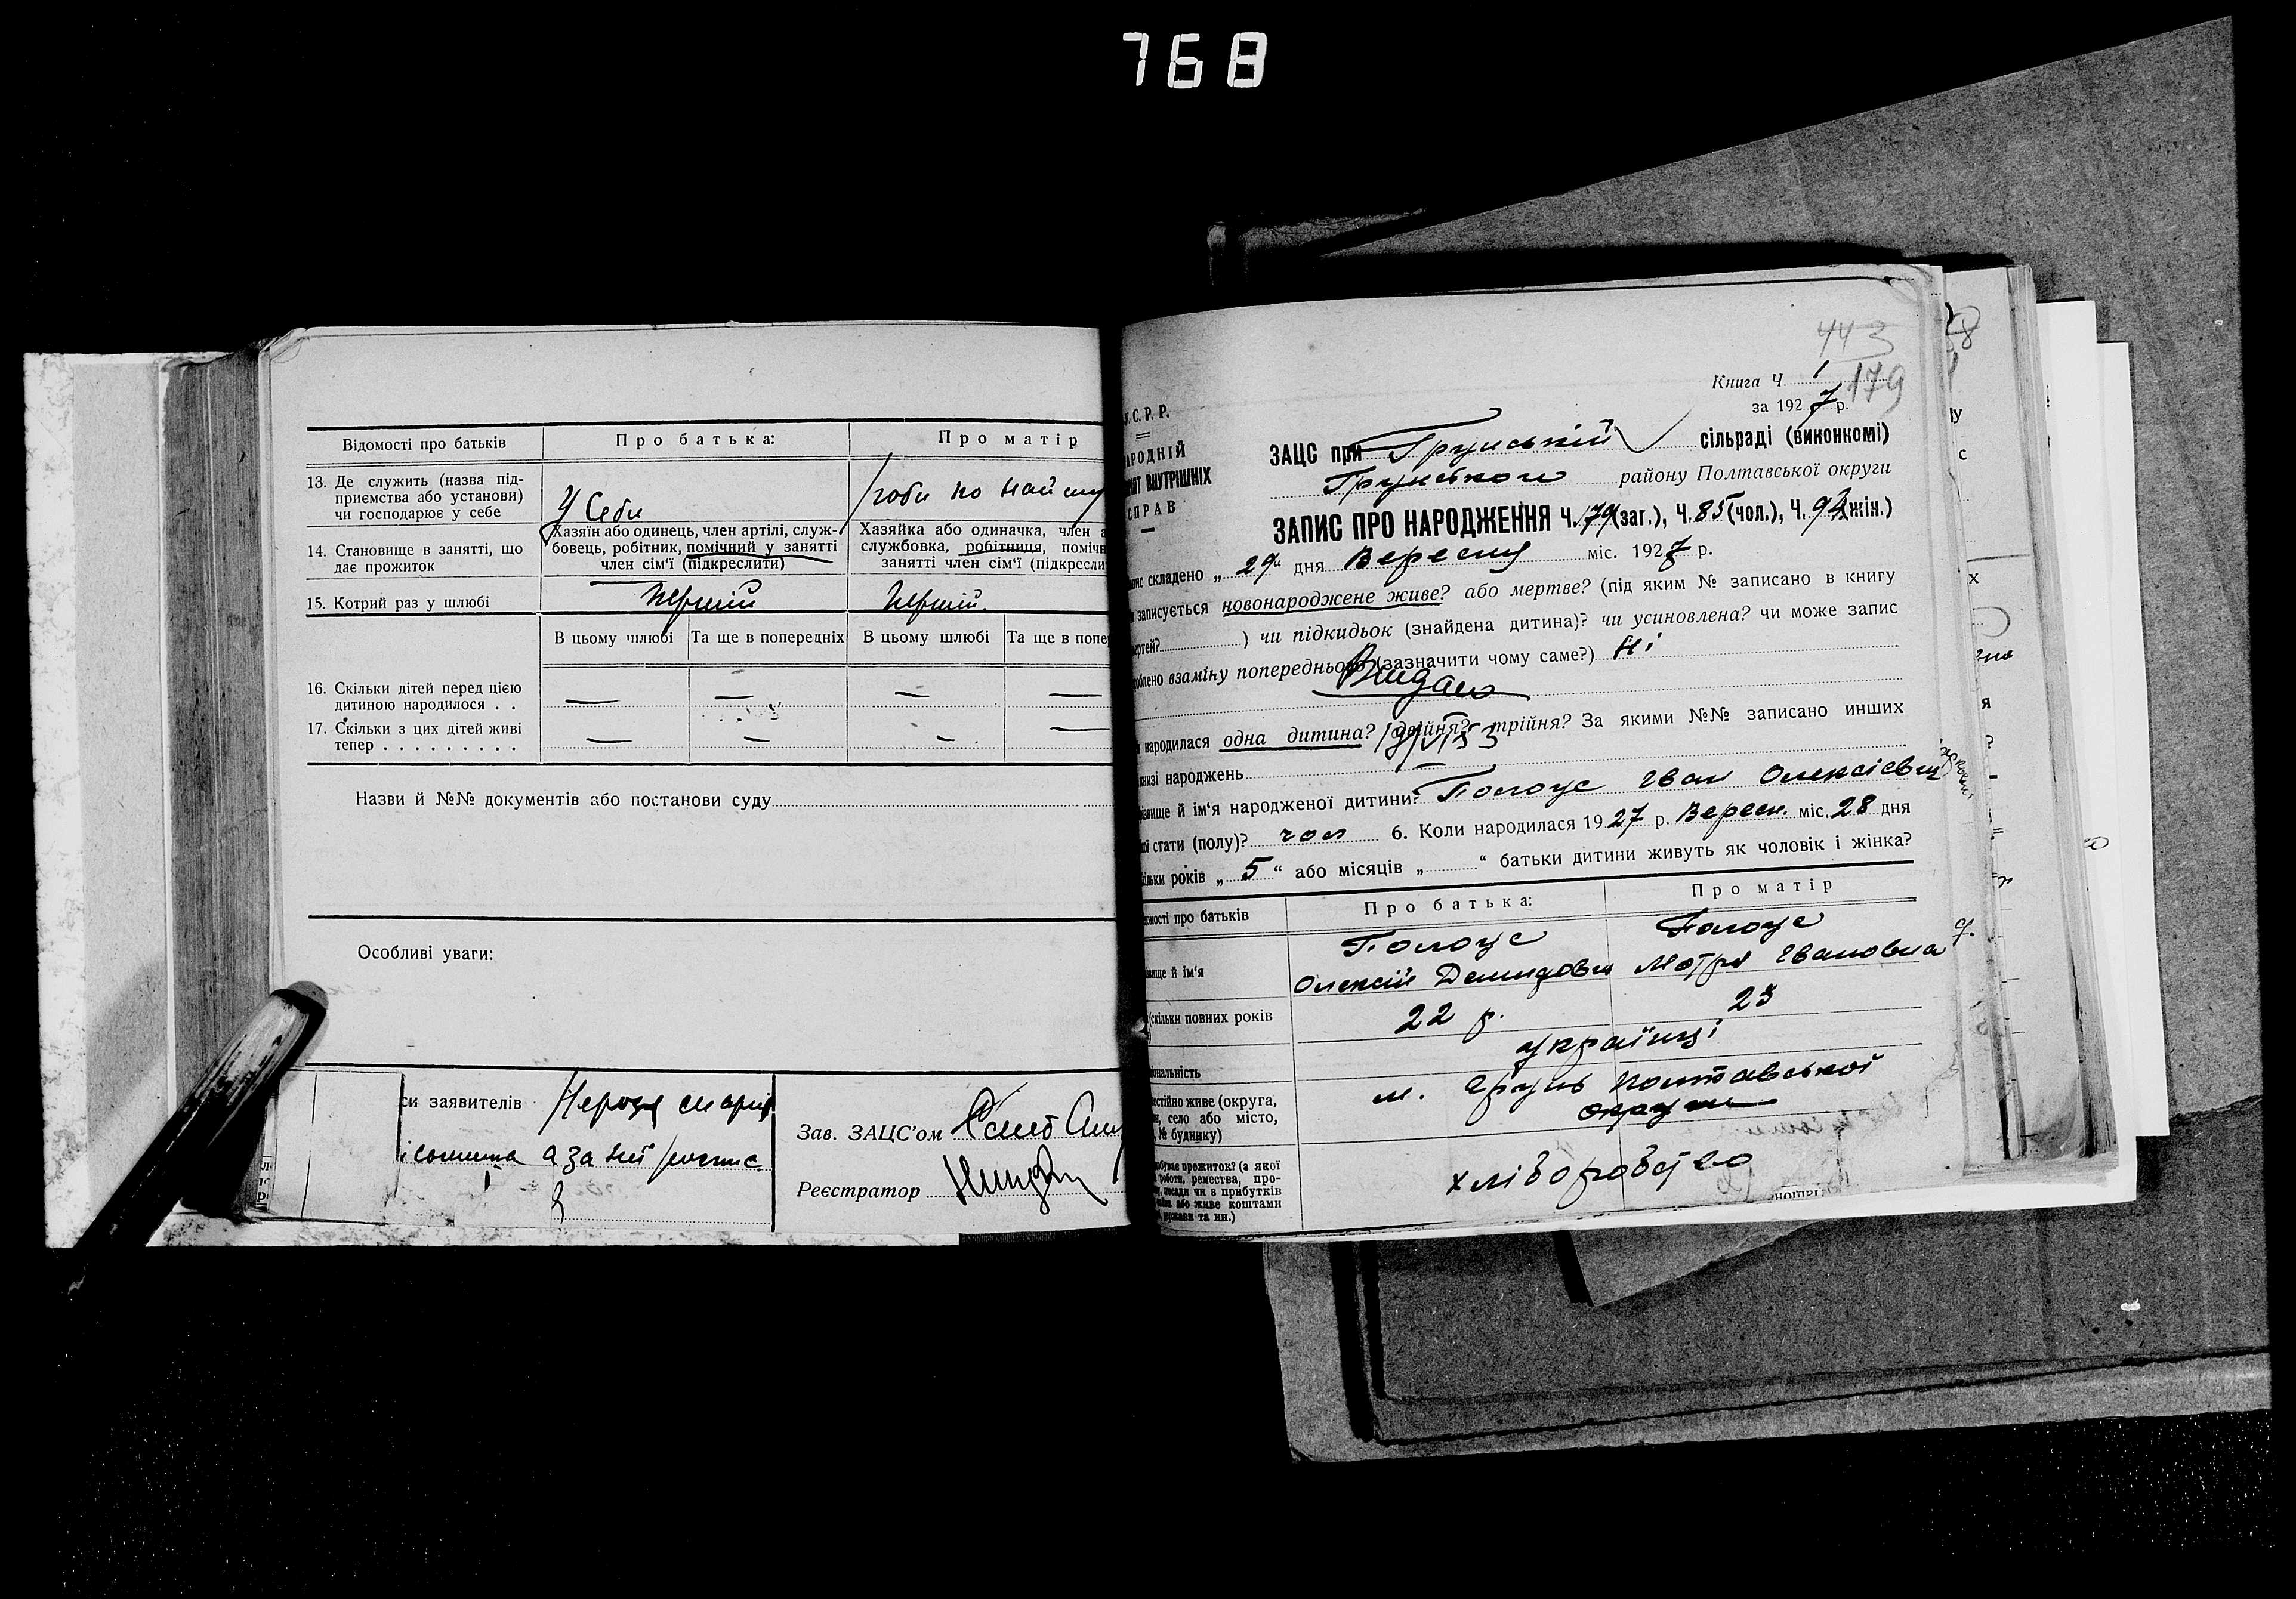 768
Відомості про батьків
Про батька:
Про матір
13. Де служить (назва під-
приємства або установи)
чи господарює у себе
У Себе
14. Становище в занятті, що
дає прожиток
Хазяїн або одинець, член артілі, служ-
бовець, робітник, помічний у занятті
член сім'ї (підкреслити)
Хазяйка або одиначка, член а
службовка, робітниця, помічн
занятті член сім'ї (підкресли
15. Котрий раз у шлюбі
Перший
Перший.
В цьому шлюбі
Та ще в попередніх
В цьому шлюбі
Та ще в попе
16. Скільки дітей перед цією
дитиною народилося . .
— — — —
17. Скільки з цих дітей живі
тепер . . . . . . . . .
— — - —
Назви й №№ документів або постанови суду
Особливі уваги:
си заявителів
а за неї
Зав. ЗАЦС'ом
Реєстратор
443
Книга Ч. 1
179
за 1927 р.
У.С.Р.Р.
АРОДНІЙ
ВНУТРІШНІХ
СПРАВ
ЗАЦС при Грунській сільраді (виконкомі)
Грунського району Полтавської округи
ЗАПИС ПРО НАРОДЖЕННЯ Ч. 179 (заг.), Ч. 85 (чол.), Ч. (жін.)
складено „ 29 “ дня Вересня міс. 1927 р.
записується новонароджене живе? або мертве? (під яким № записано в книгу
ертей? ) чи підкидьок (знайдена дитина)? чи усиновлена? чи може запис
роблено взаміну попереднього (зазначити чому саме?) Ні
Видано
народилася одна дитина? двійня? трійня? За якими №№ записано инших
книзі народжень —
звище й ім'я народженої дитини?Голоус Іван Олексієвич
стати (полу)? чол 6. Коли народилася 1927 р. Вересн. міс. 28 дня
ільки років „ 5 “ або місяців „ “ батьки дитини живуть як чоловік і жінка?
омості про батьків
Про батька:
Про матір
вище й ім'я
Голоус
Олексій Демидович
Голоус
Мотря Івановна
(скільки повних років
22 р.
23
іональність
українці
остійно живе (округа,
н, село або місто,
№ будинку)
м. Грунь Полтавської
округи
буває прожиток? (з якої
роботи, ремества, про-
посади чи з прибутків
або живе коштами
держави та ин.)
хліборобство